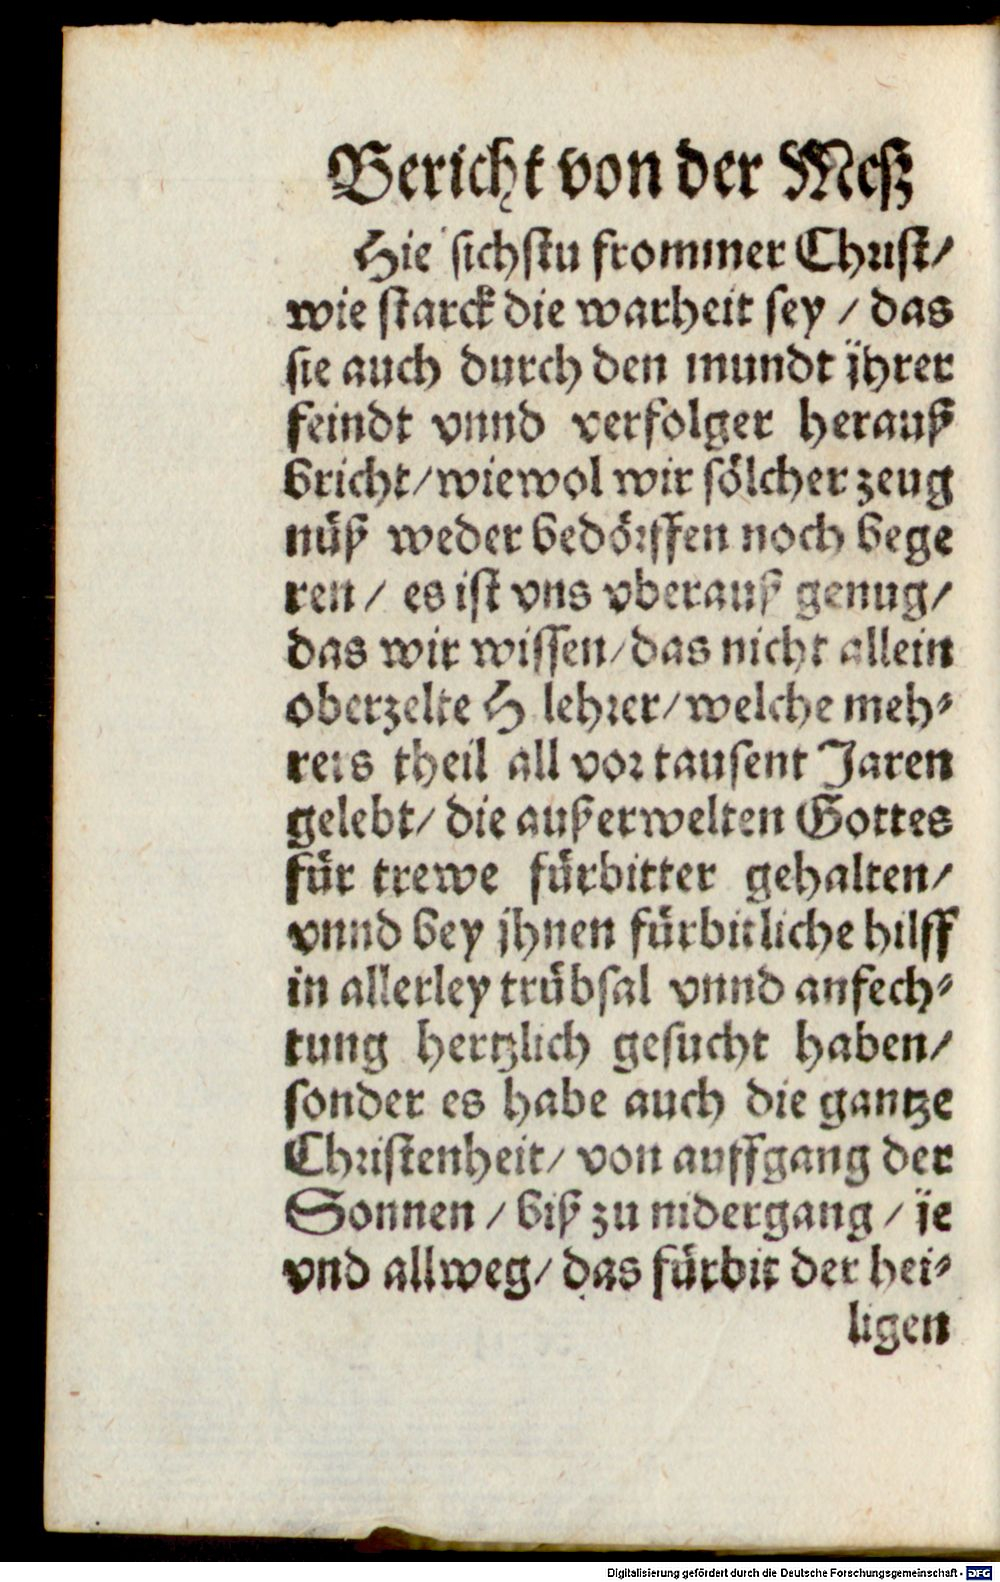 Bericht von der Meß
Hie sichstu frommer Christ/
wie starck die warheit sey / das
sie auch durch den mundt jhrer
feindt vnnd verfolger herauß
bricht/wiewol wir sölcher zeug
nüß weder bedörffen noch bege
ren/ es ist vns vberauß genug/
das wir wissen/das nicht allein
oberzelte H lehrer/welche meh-
rers theil all vor tausent Jaren
gelebt/ die außerwelten Gottes
für trewe fürbitter gehalten/
vnnd bey jhnen fürbitliche hilff
in allerley trübsal vnnd anfech-
tung hertzlich gesucht haben/
sonder es habe auch die gantze
Christenheit/ von auffgang der
Sonnen / biß zu nidergang / je
vnd allweg/ das fürbit der hei-
ligen
Digitalisierung gefördert durch die Deutsche Forschungsgemeinschaft - DFG